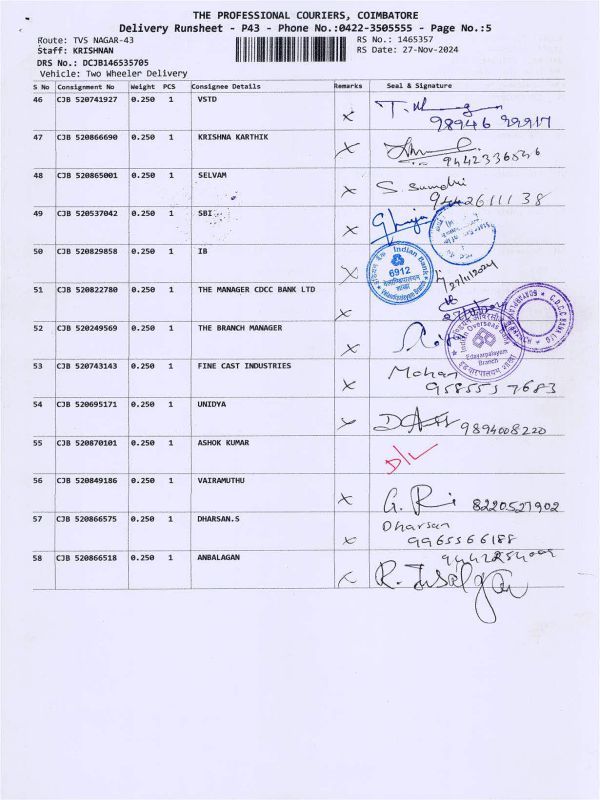 THE PROFESSIONAL COURIERS, COIMBATORE
Delivery Runsheet - P43 - Phone No.:0422-3505555 - Page No.:5
Route: TVS NAGAR-43 RS No.: 1465357
Staff: KRISHNAN RS Date: 27-Nov-2024
DRS No.: DCJB146535705
Vehicle: Two Wheeler Delivery
S No Consignment No Weight PCS Consignee Details Remarks Seal & Signature
46 CJB 520741927 0.250 1 VSTD
47 CJB 520866690 0.250 1 KRISHNA KARTHIK
9442336536
48 CJB 520865001 0.250 1 SELVAM S. Sumdri
9442611138
49 CJB 520537042 0.250 1 SBI
50 CJB 520829858 0.250 1 IB
Indian Bank
6912
27/11/2024
51 CJB 520822780 0.250 1 THE MANAGER CDCC BANK LTD
IB
C.D.C.C BANK LTD
52 CJB 520249569 0.250 1 THE BRANCH MANAGER
Indian Overseas Bank
Edayarpalayam
Branch
53 CJB 520743143 0.250 1 FINE CAST INDUSTRIES Mohan
9585517683
54 CJB 520695171 0.250 1 UNIDYA 9894008220
55 CJB 520870101 0.250 1 ASHOK KUMAR D/L
56 CJB 520849186 0.250 1 VAIRAMUTHU G. Ri 8220527902
57 CJB 520866575 0.250 1 DHARSAN.S Dharsan
9965566188
58 CJB 520866518 0.250 1 ANBALAGAN